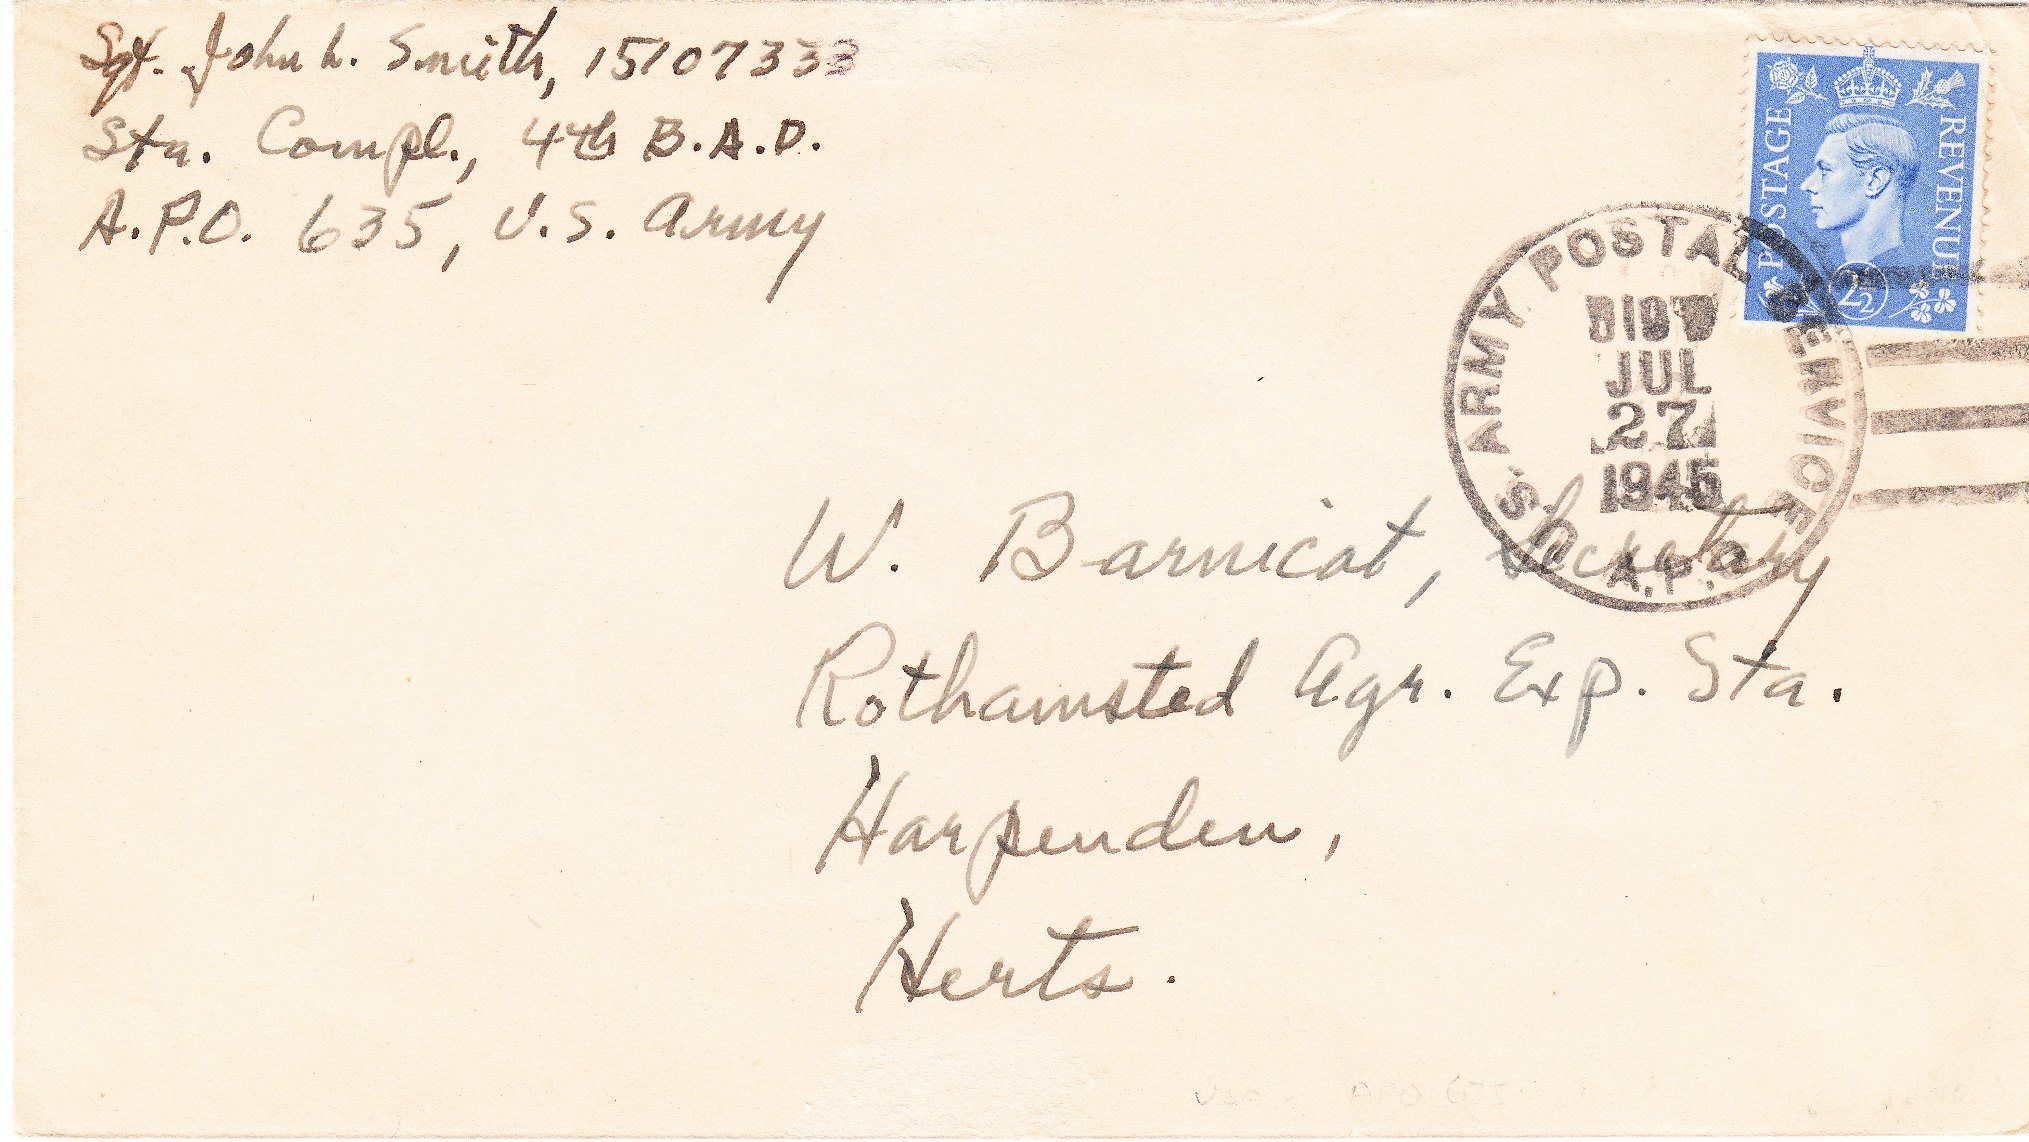 Sgt. John L. Smith, 15107333
Sta. Compl., 4th B.A.D.
A.P.O. 635, U.S. Army
POSTAGE
REVENUE
2½
U.S. ARMY POSTAL SERVICE
JUL
27
1945
A.P.O.
W. Barnicot, Secretary
Rothamsted Agr. Exp. Sta.
Harpenden,
Herts.